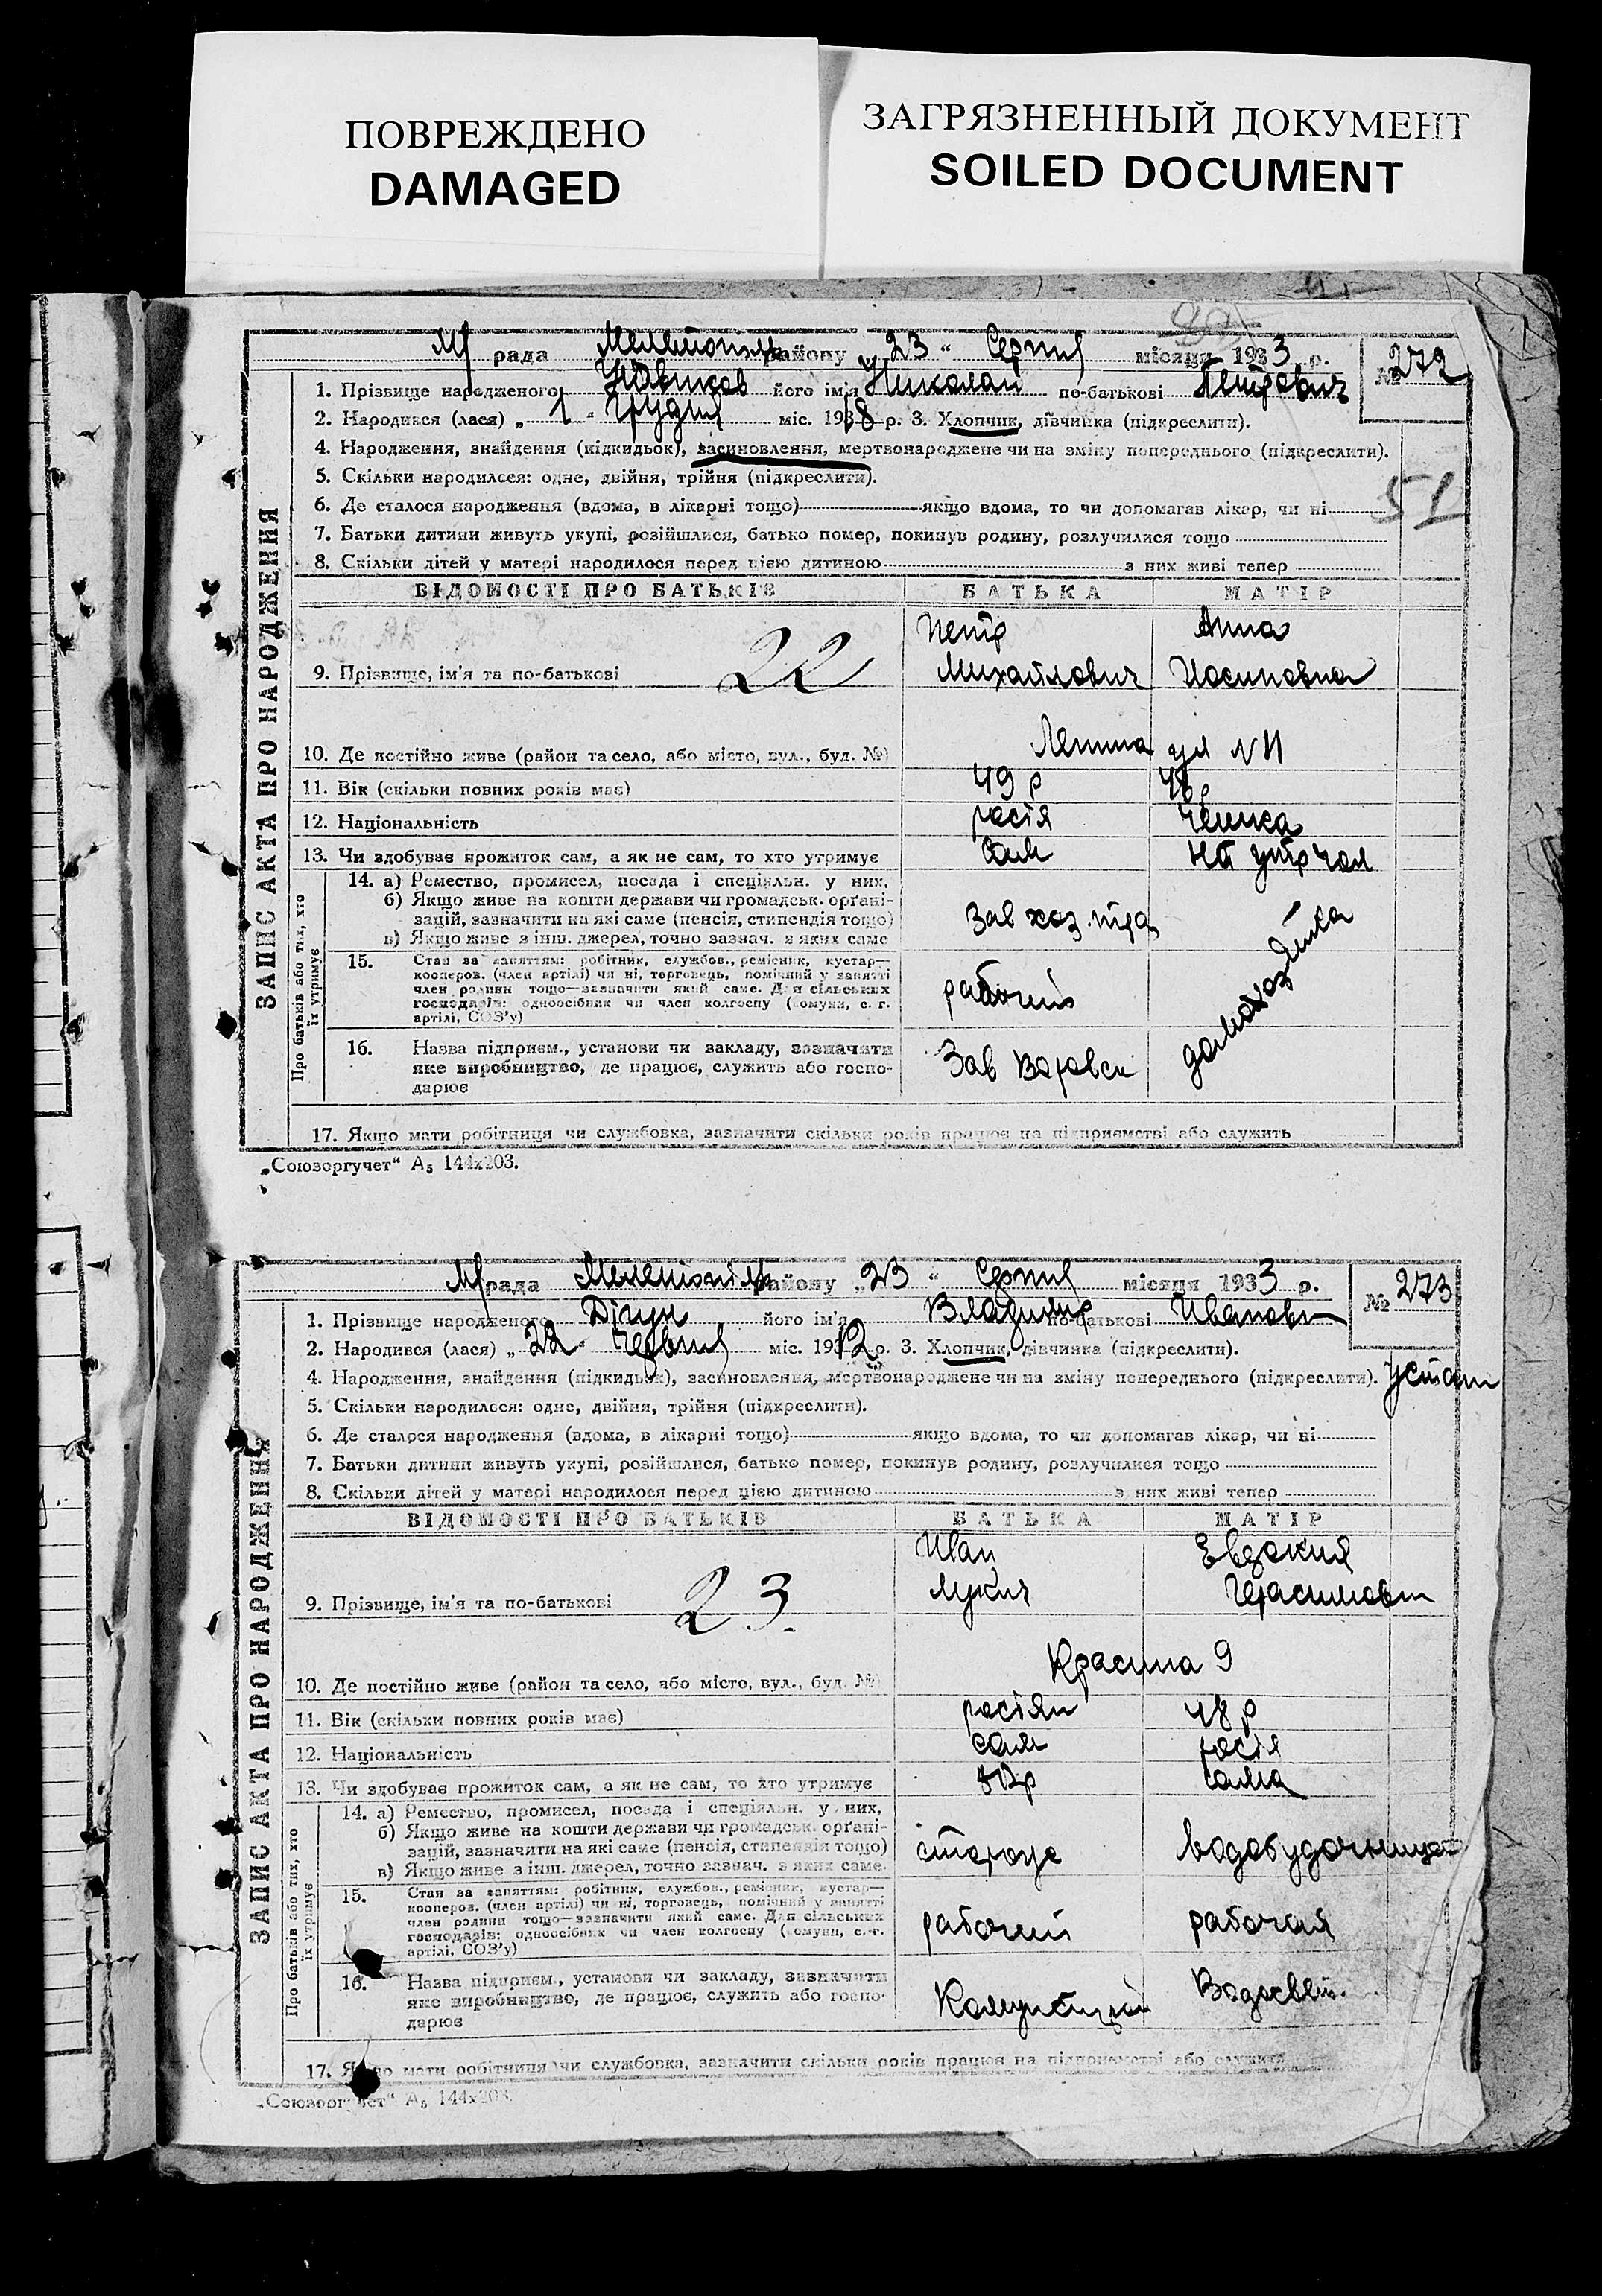 ПОВРЕЖДЕНО
DAMAGED
ЗАГРЯЗНЕННЫЙ ДОКУМЕНТ
SOILED DOCUMENT
рада Мелітопіль району „23“ Серпня місяця 1933 р.
№ 272
1. Прізвище народженого його ім'я Николай по-батькові Петрович
2. Народився (лася) „1“ Грудня міс. 1918 р. 3. Хлопчик, дівчинка (підкреслити).
4. Народження, знайдення (підкидьок), засиновлення, мертвонароджене чи на зміну попереднього (підкреслити).
5. Скільки народилося: одне, двійня, трійня (підкреслити).
51
6. Де сталося народження (вдома, в лікарні тощо) якщо вдома, то чи допомагав лікар, чи ні
7. Батьки дитини живуть укупі, розійшлися, батько помер, покинув родину, розлучилися тощо
8. Скільки дітей у матері народилося перед цією дитиною з них живі тепер
ЗАПИС АКТА ПРО НАРОДЖЕННЯ
ВІДОМОСТІ ПРО БАТЬКІВ БАТЬКА МАТІР
Петр Анна
9. Прізвище, ім'я та по-батькові 22 Михайлович Иосиповна
10. Де постійно живе (район та село, або місто, вул., буд. №) Ленина ул N 11
11. Вік (скільки повних років має) 49 р
12. Національність росія Чешка
13. Чи здобуває прожиток сам, а як не сам, то хто утримує сам на утр
Про батьків або тих, хто їх утримує
14. а) Ремество, промисел, посада і спеціяльн. у них,
б) Якщо живе на кошти держави чи громадськ. органі-
зацій, зазначити на які саме (пенсія, стипендія тощо) Зав хоз.
в) Якщо живе з інш. джерел, точно зазнач. з яких саме
домохозяйка
15. Стан за заняттям: робітник, службов., ремісник, кустар—
кооперов. (член артілі) чи ні, торговець, помічний у занятті
член родини тощо—зазначити який саме. Для сільських
господарів: одноосібник чи член колгоспу (комуни, с. г.
артілі, СОЗ'у)
рабочий
16. Назва підприєм., установи чи закладу, зазначити
яке виробництво, де працює, служить або госпо-
дарює
Зав Воровск
17. Якщо мати робітниця чи службовка, зазначити скільки років працює на підприємстві або служить
„Союзоргучет“ А₅ 144х203.
рада Мелітопіль району „23“ Серпня місяця 1933 р.
№ 273
1. Прізвище народженого Дігун його ім'я Владимир по-батькові Иванович
2. Народився (лася) „22“ Червня міс. 1912 р. 3. Хлопчик, дівчинка (підкреслити).
4. Народження, знайдення (підкидьок), засиновлення, мертвонароджене чи на зміну попереднього (підкреслити). устан
5. Скільки народилося: одне, двійня, трійня (підкреслити).
6. Де сталося народження (вдома, в лікарні тощо) якщо вдома, то чи допомагав лікар, чи ні
7. Батьки дитини живуть укупі, розійшлися, батько помер, покинув родину, розлучилися тощо
8. Скільки дітей у матері народилося перед цією дитиною з них живі тепер
ЗАПИС АКТА ПРО НАРОДЖЕННЯ
ВІДОМОСТІ ПРО БАТЬКІВ БАТЬКА МАТІР
Иван Евдокия
9. Прізвище, ім'я та по-батькові 23. Лукич Герасимовн
10. Де постійно живе (район та село, або місто, вул., буд. №) Красина 9
11. Вік (скільки повних років має) росіян 48 р
12. Національність сам росія
13. Чи здобуває прожиток сам, а як не сам, то хто утримує сама
Про батьків або тих, хто їх утримує
14. а) Ремество, промисел, посада і спеціяльн. у них,
б) Якщо живе на кошти держави чи громадськ. органі-
зацій, зазначити на які саме (пенсія, стипендія тощо) сторож
в) Якщо живе з інш. джерел, точно зазнач. з яких саме.
15. Стан за заняттям: робітник, службов., ремісник, кустар—
кооперов. (член артілі) чи ні, торговець, помічний у занятті
член родини тощо—зазначити який саме. Для сільських
господарів: одноосібник чи член колгоспу (комуни, с.-г.
артілі, СОЗ'у)
рабочий рабочая
16. Назва підприєм., установи чи закладу, зазначити
яке виробництво, де працює, служить або госпо-
дарює
17. Якщо мати робітниця чи службовка, зазначити скільки років працює на підприємстві або служить
„Союзоргучет“ А₅ 144х203.